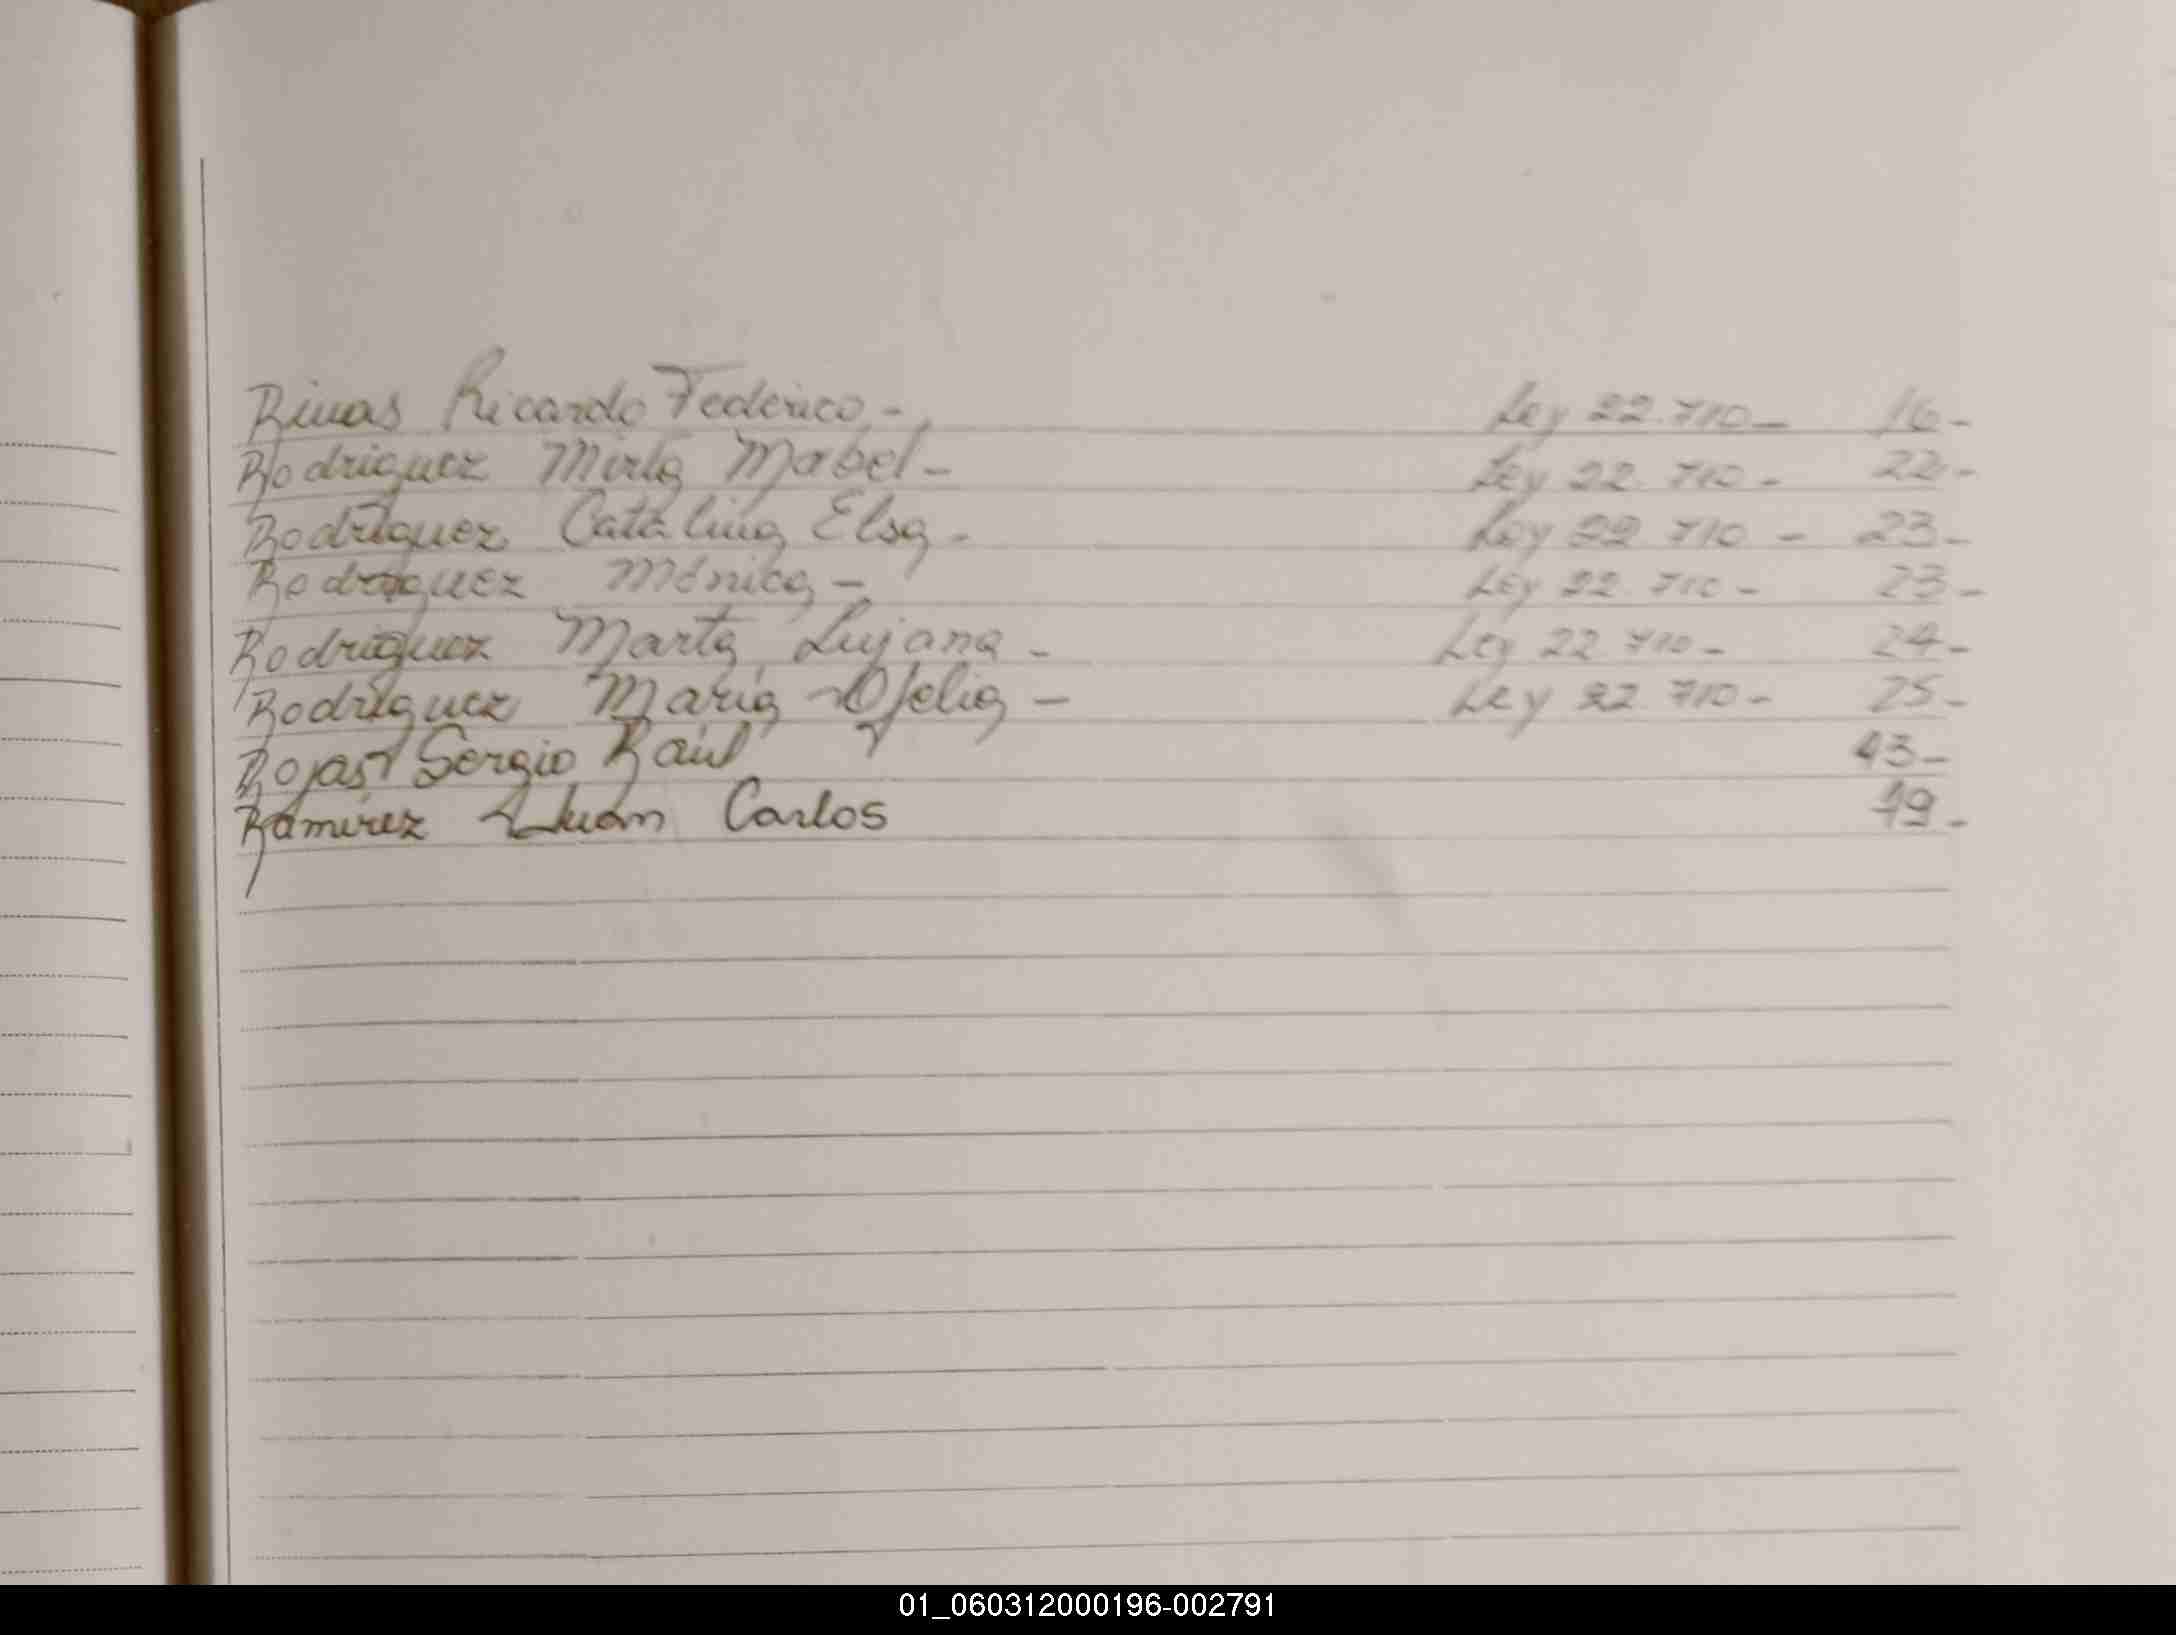 Rivas Ricardo Federico - Ley 22.710 - 16 -
Rodriguez Mirta Mabel - Ley 22.710 - 22 -
Rodriguez Catalina Elsa - Ley 22.710 - 23 -
Rodriguez Mónica - Ley 22.710 - 23 -
Rodriguez Marta Lujana - Ley 22.710 - 24 -
Rodriguez María Ofelia - Ley 22.710 - 25 -
Rojas Sergio Raúl 43 -
Ramirez Juan Carlos 49 -
01_060312000196-002791